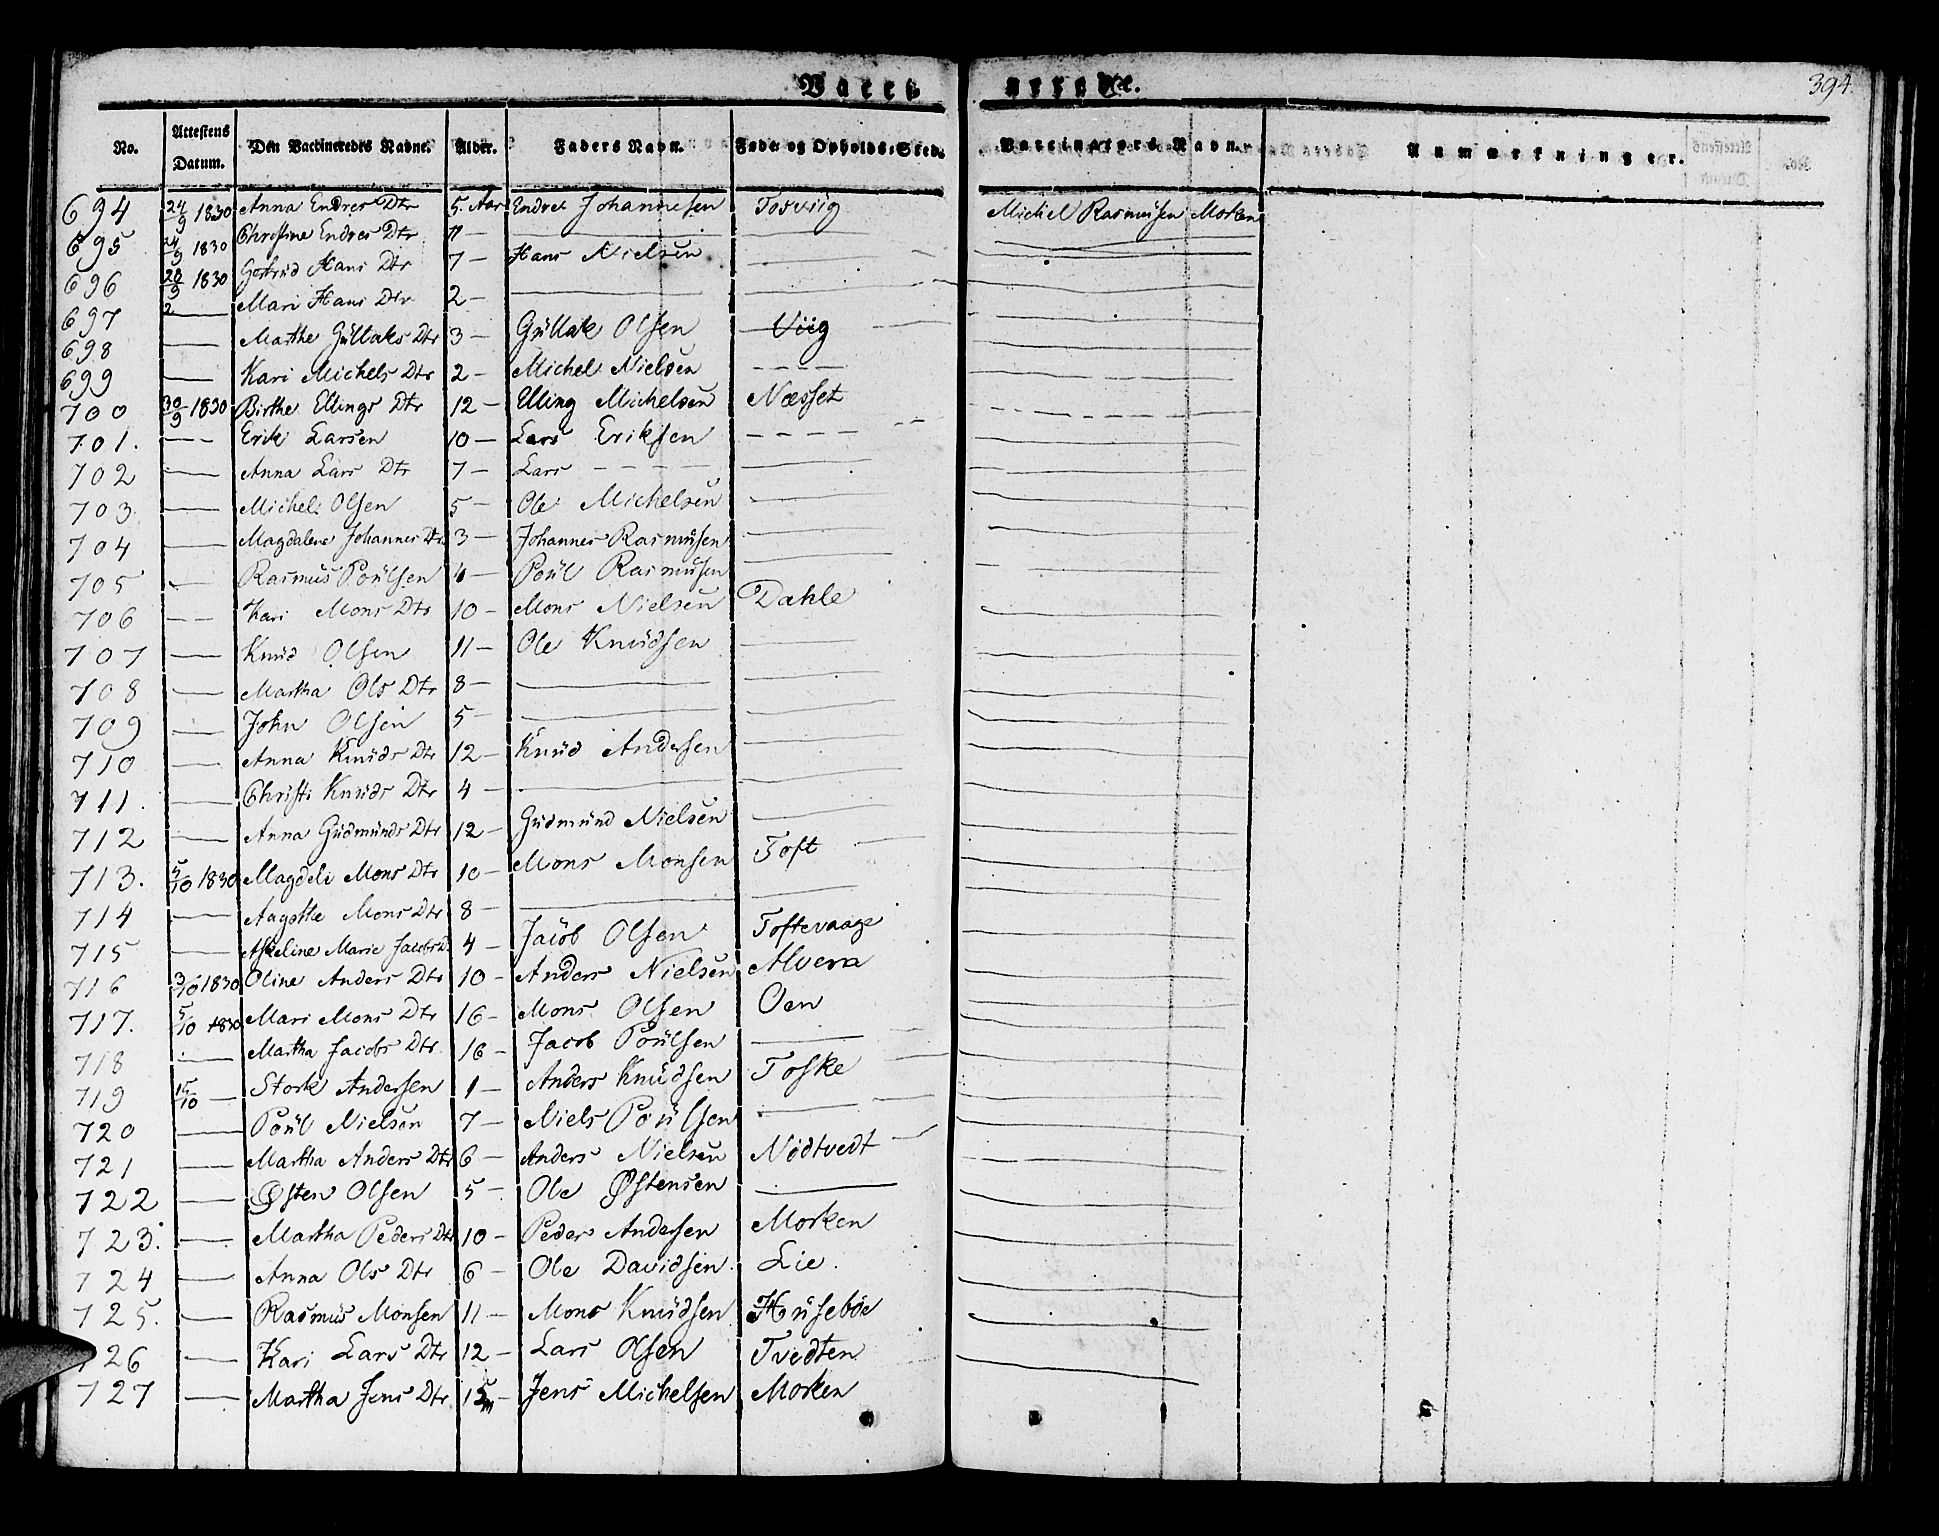 Vacci nerede.
394.
No. Attestens Datum. Den Vaccineredes Navne. Alder. Faders Navn. Føde- og Opholds-Sted. Vaccinateurs Navn. Anmærkninger.
694 24/9 1830 Anna Endres Dtr 5. Aar Endre Johannesen Tosviig Michel Rasmusen Morken
695 24/9 1830 Christine Endres Dtr 11 — — — —
696 28/9 1830 Gertrud Hans Dtr 7 — Hans Nielsen — —
697 — Mari Hans Dtr 2 — — — —
698 — Marthe Gullaks Dtr 3 — Gullak Olsen Viig —
699 — Kari Michels Dtr 2 — Michel Nielsen — —
700 30/9 1830 Birthe Ellings Dtr 12 — Elling Michelsen Næsset —
701. — Erik Larsen 10 — Lars Eriksen — —
702 — Anna Lars Dtr 7 — Lars — — —
703 — Michel Olsen 5 — Ole Michelsen — —
704 — Magdalene Johannes Dtr 3 — Johannes Rasmusen — —
705 — Rasmus Poulsen 4 — Poul Rasmusen — —
706 — Kari Mons Dtr 10 — Mons Nielsen Dahle —
707 — Knud Olsen 11 — Ole Knudsen — —
708 — Martha Ols Dtr 8 — — — —
709 — John Olsen 5 — — — —
710 — Anna Knuds Dtr 12 — Knud Andersen — —
711. — Christi Knuds Dtr 4 — — — —
712 — Anna Gudmunds Dtr 12 — Gudmund Nielsen — —
713. 5/10 1830 Magdeli Mons Dtr 10 — Mons Monsen Toft —
714 — Aagothe Mons Dtr 8 — — — —
715 — Marie Jacobs D. 4 — Jacob Olsen Toftevaage —
716 3/10 1830 Oline Anders Dtr 10 — Anders Nielsen Alvera —
717. 5/10 1830 Mari Mons Dtr 16 — Mons Olsen Oen —
718 — Martha Jacobs Dtr 16 — Jacob Poulsen — —
719 15/10 — Stork Andersen 1 — Anders Knudsen Toske —
720 — Poul Nielsen 7 — Niels Poulsen — —
721 — Martha Anders Dtr 6 — Anders Nielsen Nødtvedt —
722 — Østen Olsen 5 — Ole Østensen — —
723. — Martha Peders Dtr 10 — Peder Andersen Morken —
724 — Anna Ols Dtr 6 — Ole Davidsen Lie. —
725. — Rasmus Monsen 11 — Mons Knudsen Husebøe —
726 — Kari Lars Dtr 12 — Lars Olsen Tvedten —
727 — Martha Jens Dtr Jens Michelsen Morken